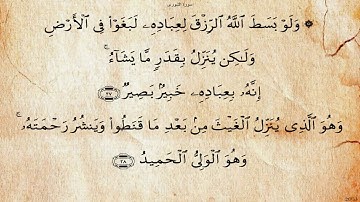 سورة الشورى
۞ وَلَوْ بَسَطَ اللَّهُ الرِّزْقَ لِعِبَادِهِۦ لَبَغَوْا۟ فِى الْأَرْضِ
وَلَـٰكِن يُنَزِّلُ بِقَدَرٍ مَّا يَشَآءُ ۚ
إِنَّهُۥ بِعِبَادِهِۦ خَبِيرٌۢ بَصِيرٌ ﴿٢٧﴾
وَهُوَ الَّذِى يُنَزِّلُ الْغَيْثَ مِنۢ بَعْدِ مَا قَنَطُوا۟ وَيَنشُرُ رَحْمَتَهُۥ ۚ
وَهُوَ الْوَلِىُّ الْحَمِيدُ ﴿٢٨﴾